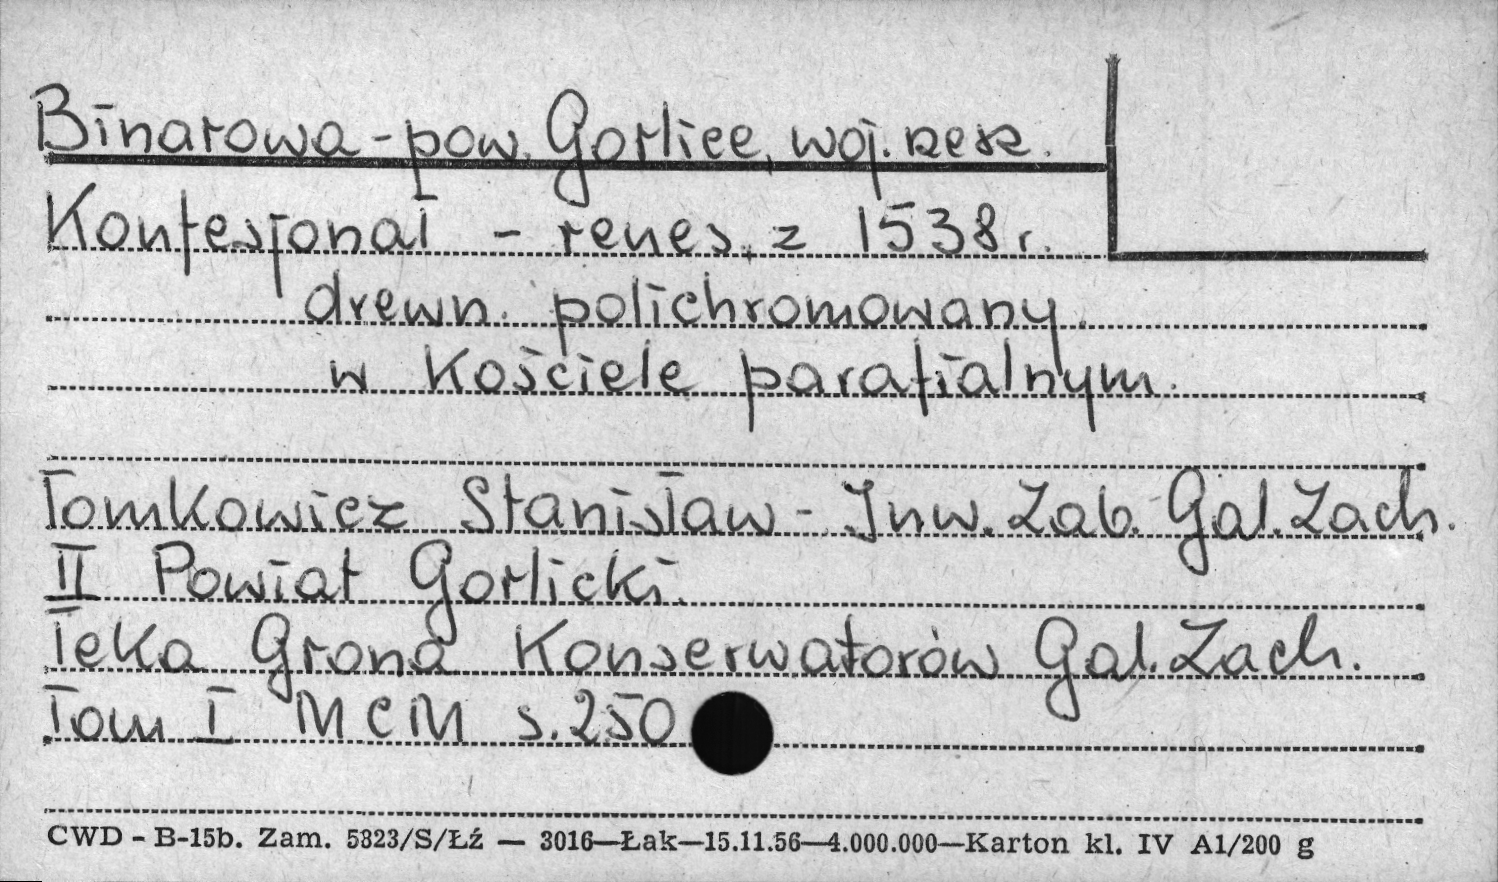 Binarowa - pow. Gorlice, woj. rzesz.
Konfesjonał - renes. z 1538 r.
drewn. polichromowany.
w Kościele parafialnym.
Tomkowicz Stanisław - Inw. Zab. Gal. Zach.
II Powiat Gorlicki.
Teka Grona Konserwatorów Gal. Zach.
Tom I MCM s. 250
CWD - B-15b. Zam. 5823/S/Łź — 3016—Łak—15.11.56—4.000.000—Karton kl. IV A1/200 g